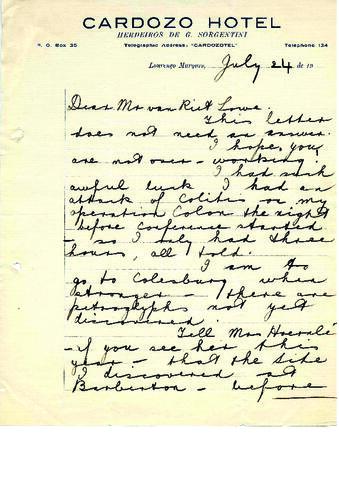 CARDOZO HOTEL
HERDEIROS DE G. SORGENTINI
P. O. Box 35 Telegraphic Address: "CARDOZOTEL" Telephone 134
Lourenço Marques, July 24 de 19
Dear Mr van Riet Lowe.
This letter
does not need an answer.
I hope you
are not over-working.
I had such
awful luck I had an
attack of Colitis on my
operation Colon the night
before Conference started
- so I only had three
hours, all told.
I am to
go to Colesburg when
stronger - there are
petroglyphs not yet
discovered.
Tell Mrs Hoernlé
- if you see her this
year - that the Site
I discovered at
Barberton - before